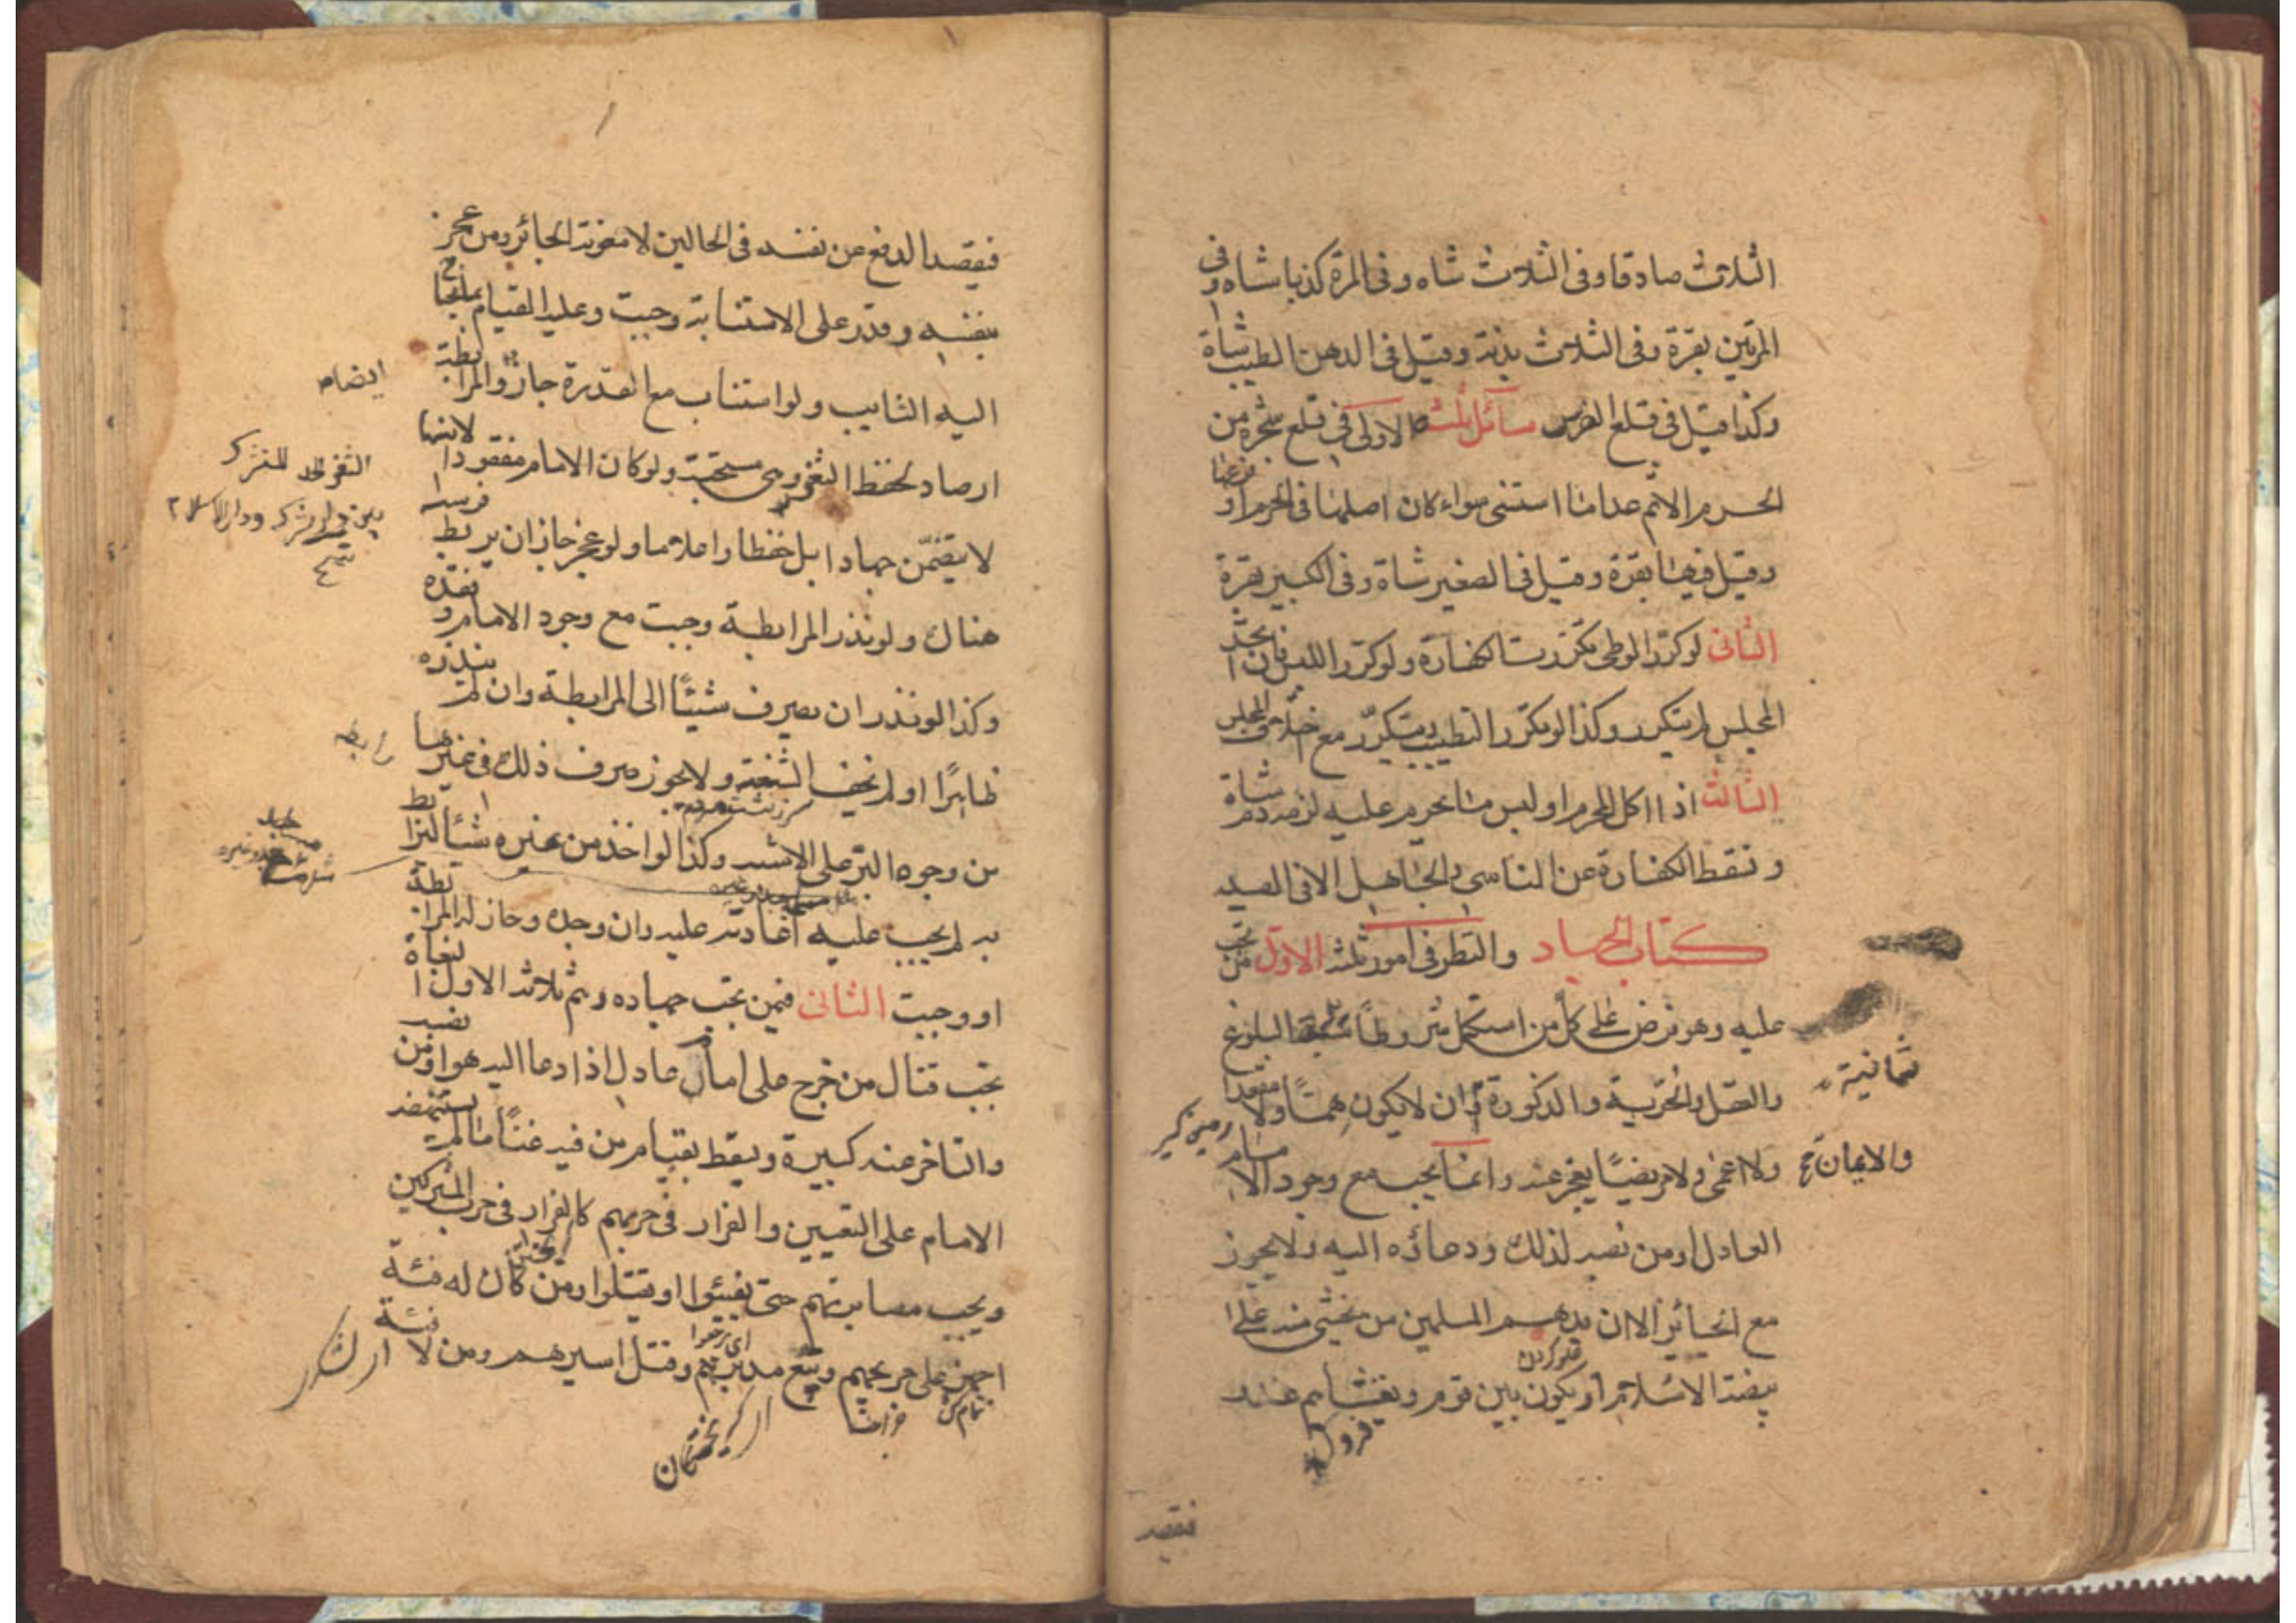 الثلاث صادقا وفى الثلاث شاه وفى المرة كذبا شاه وفى
المرتين بقرة وفى الثلاث بدنة وقيل فى الدهن الطيب شاة
وكذا قيل فى قلع الضرس مسائل ثلث الاولى فى قلع شجرة من
الحرم الاثم عدا ما استثنى سواء كان اصلها فى الحرم او فرعها
وقيل فيها بقرة وقيل فى الصغيرة شاة وفى الكبيرة بقرة
الثانى لو كرر الوطى تكررت الكفارة ولو كرر اللبس فان اتحد
المجلس لم يتكرر وكذا لو تكرر التطيب ويتكرر مع اختلاف المجلس
الثالث اذا اكل المحرم او لبس ما يحرم عليه لزمه دم شاة
وتسقط الكفارة عن الناسى والجاهل الا فى الصيد
كتاب الجهاد والنظر فى امور ثلثة الاول من تجب
عليه وهو فرض على كل من استكمل شروطا البلوغ
ثمانية
والعقل والحرية والذكورة وان لا يكون هما ولا مقعدا
زمين گير
ولا اعمى ولا مريضا يعجز عنه وانما يجب مع وجود الامام
والايمان
العادل او من نصبه لذلك ودعائه اليه ولا يجوز
مع الجائر الا ان يدهم المسلمين من يخشى منه على
بيضة الاسلام او يكون بين قوم ويغشاهم عدو
فيقصد
فيقصد الدفع عن نفسه فى الحالين لا معونة الجائر ومن عجز
بنفسه وقدر على الاستنابة وجبت وعليه القيام بما يحتاج
اليه النايب ولو استناب مع القدرة جاز والمرابطة
ارصاد لحفظ الثغر وهى مستحبة ولو كان الامام مفقودا لانها
لا يتضمن جهادا بل حفظا واعلاما ولو عجز جاز ان يربط فرسه
هناك ولو نذر المرابطة وجبت مع وجود الامام و فقده
وكذا لو نذر ان يصرف شيئا الى المرابطة وان لم ينذره
ظاهرا او لم يخف الشنعة ولا يجوز صرف ذلك فى غيرها
من وجوه البر على الاشبه وكذا لو اخذ من غيره شيئا ليرابط
به لم يجب عليه اعادته عليه وان وجده وجاز له المرابطة
او وجبت الثانى فيمن تجب جهاده وهم ثلاثة الاول البغاة
تجب قتال من خرج على امام عادل اذا دعا اليه هو او من نصبه
والتاخر عنه كبيرة ويسقط بقيام من فيه غنا ما لم يستنهضه
الامام على التعيين والفرار فى حربهم كالفرار فى حرب المشركين
ويجب مصابرتهم حتى يفيئوا او يقتلوا ومن كان له فئة
اجهز على جريحهم ويتبع مدبرهم وقتل اسيرهم ومن لا فئة